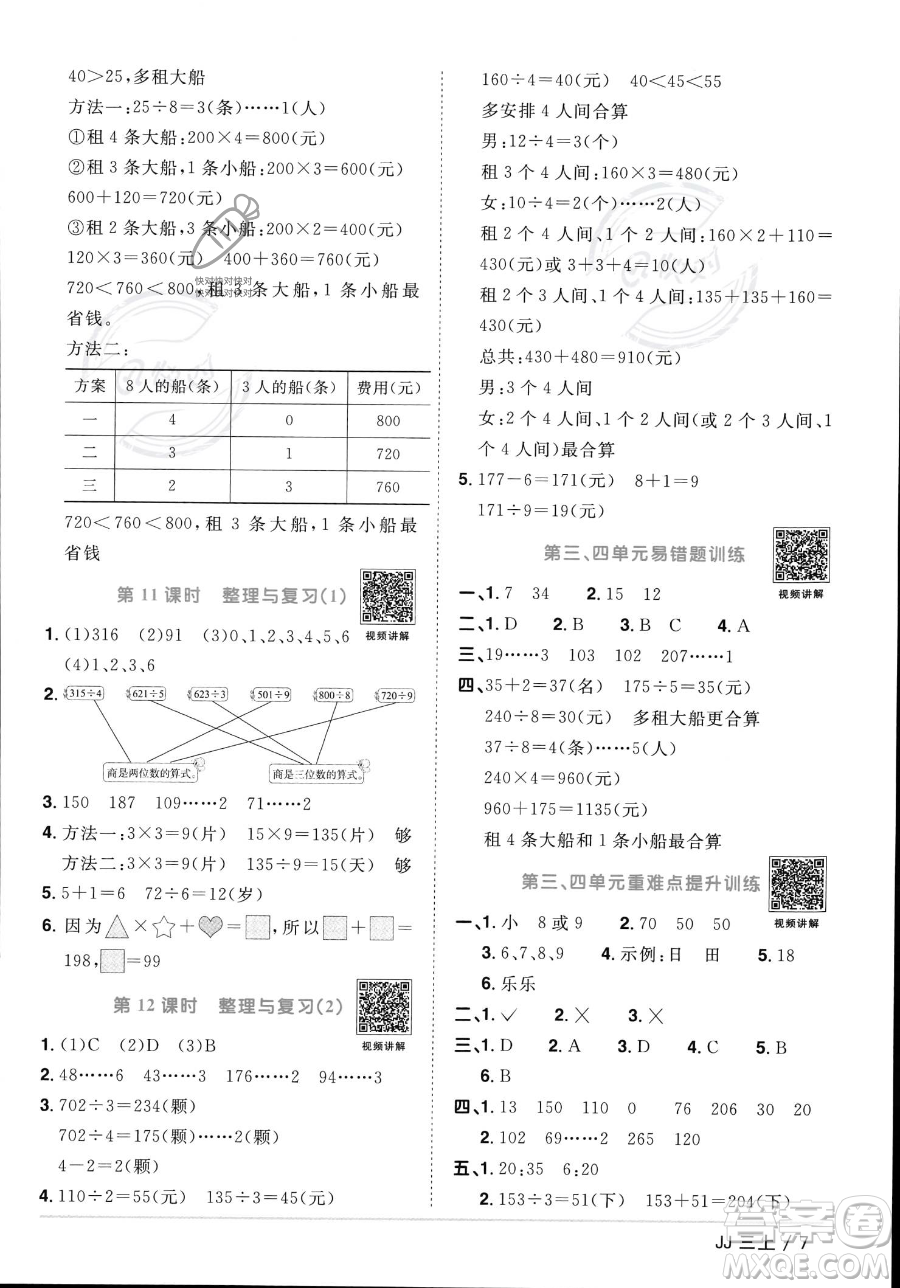 40＞25,多租大船
方法一:25÷8=3(条)……1(人)
①租 4 条大船:200×4=800(元)
②租 3 条大船,1 条小船:200×3=600(元)
600+120=720(元)
③租 2 条大船,3 条小船:200×2=400(元)
120×3=360(元) 400+360=760(元)
720＜760＜800,租 3 条大船,1 条小船最
省钱。
方法二:
方案 8 人的船(条) 3 人的船(条) 费用(元)
一 4 0 800
二 3 1 720
三 2 3 760
720＜760＜800,租 3 条大船,1 条小船最
省钱
第 11 课时 整理与复习(1)
视频讲解
1. (1)316 (2)91 (3)0、1、2、3、4、5、6
(4)1、2、3、6
2. 315÷4 621÷5 623÷3 501÷9 800÷8 720÷9
商是两位数的算式。 商是三位数的算式。
3. 150 187 109……2 71……2
4. 方法一:3×3=9(片) 15×9=135(片) 够
方法二:3×3=9(片) 135÷9=15(天) 够
5. 5+1=6 72÷6=12(岁)
6. 因为△×☆+♥=□,所以□+□=
198,□=99
第 12 课时 整理与复习(2)
视频讲解
1. (1)C (2)D (3)B
2. 48……6 43……3 176……2 94……3
3. 702÷3=234(颗)
702÷4=175(颗)……2(颗)
4-2=2(颗)
4. 110÷2=55(元) 135÷3=45(元)
160÷4=40(元) 40＜45＜55
多安排 4 人间合算
男:12÷4=3(个)
租 3 个 4 人间:160×3=480(元)
女:10÷4=2(个)……2(人)
租 2 个 4 人间、1 个 2 人间:160×2+110=
430(元)或 3+3+4=10(人)
租 2 个 3 人间、1 个 4 人间:135+135+160=
430(元)
总共:430+480=910(元)
男:3 个 4 人间
女:2 个 4 人间、1 个 2 人间(或 2 个 3 人间、1
个 4 人间)最合算
5. 177-6=171(元) 8+1=9
171÷9=19(元)
第三、四单元易错题训练
视频讲解
一、1. 7 34 2. 15 12
二、1. D 2. B 3. C 4. A
三、19……3 103 102 207……1
四、35+2=37(名) 175÷5=35(元)
240÷8=30(元) 多租大船更合算
37÷8=4(条)……5(名)
240×4=960(元)
960+175=1135(元)
租 4 条大船和 1 条小船最合算
第三、四单元重难点提升训练
视频讲解
一、1. 小 8 或 9 2. 70 50 50
3. 6、7、8、9 4. 示例:日 田 5. 18
6. 乐乐
二、1. ✓ 2. × 3. × 4. ×
三、1. D 2. A 3. D 4. D 5. B
6. B
四、1. 13 150 110 0 76 206 30 20
2. 102 69……2 265 120
五、1. 20:35 6:20
2. 153÷3=51(下) 153+51=204(下)
JJ 三上 / 7
答案卷